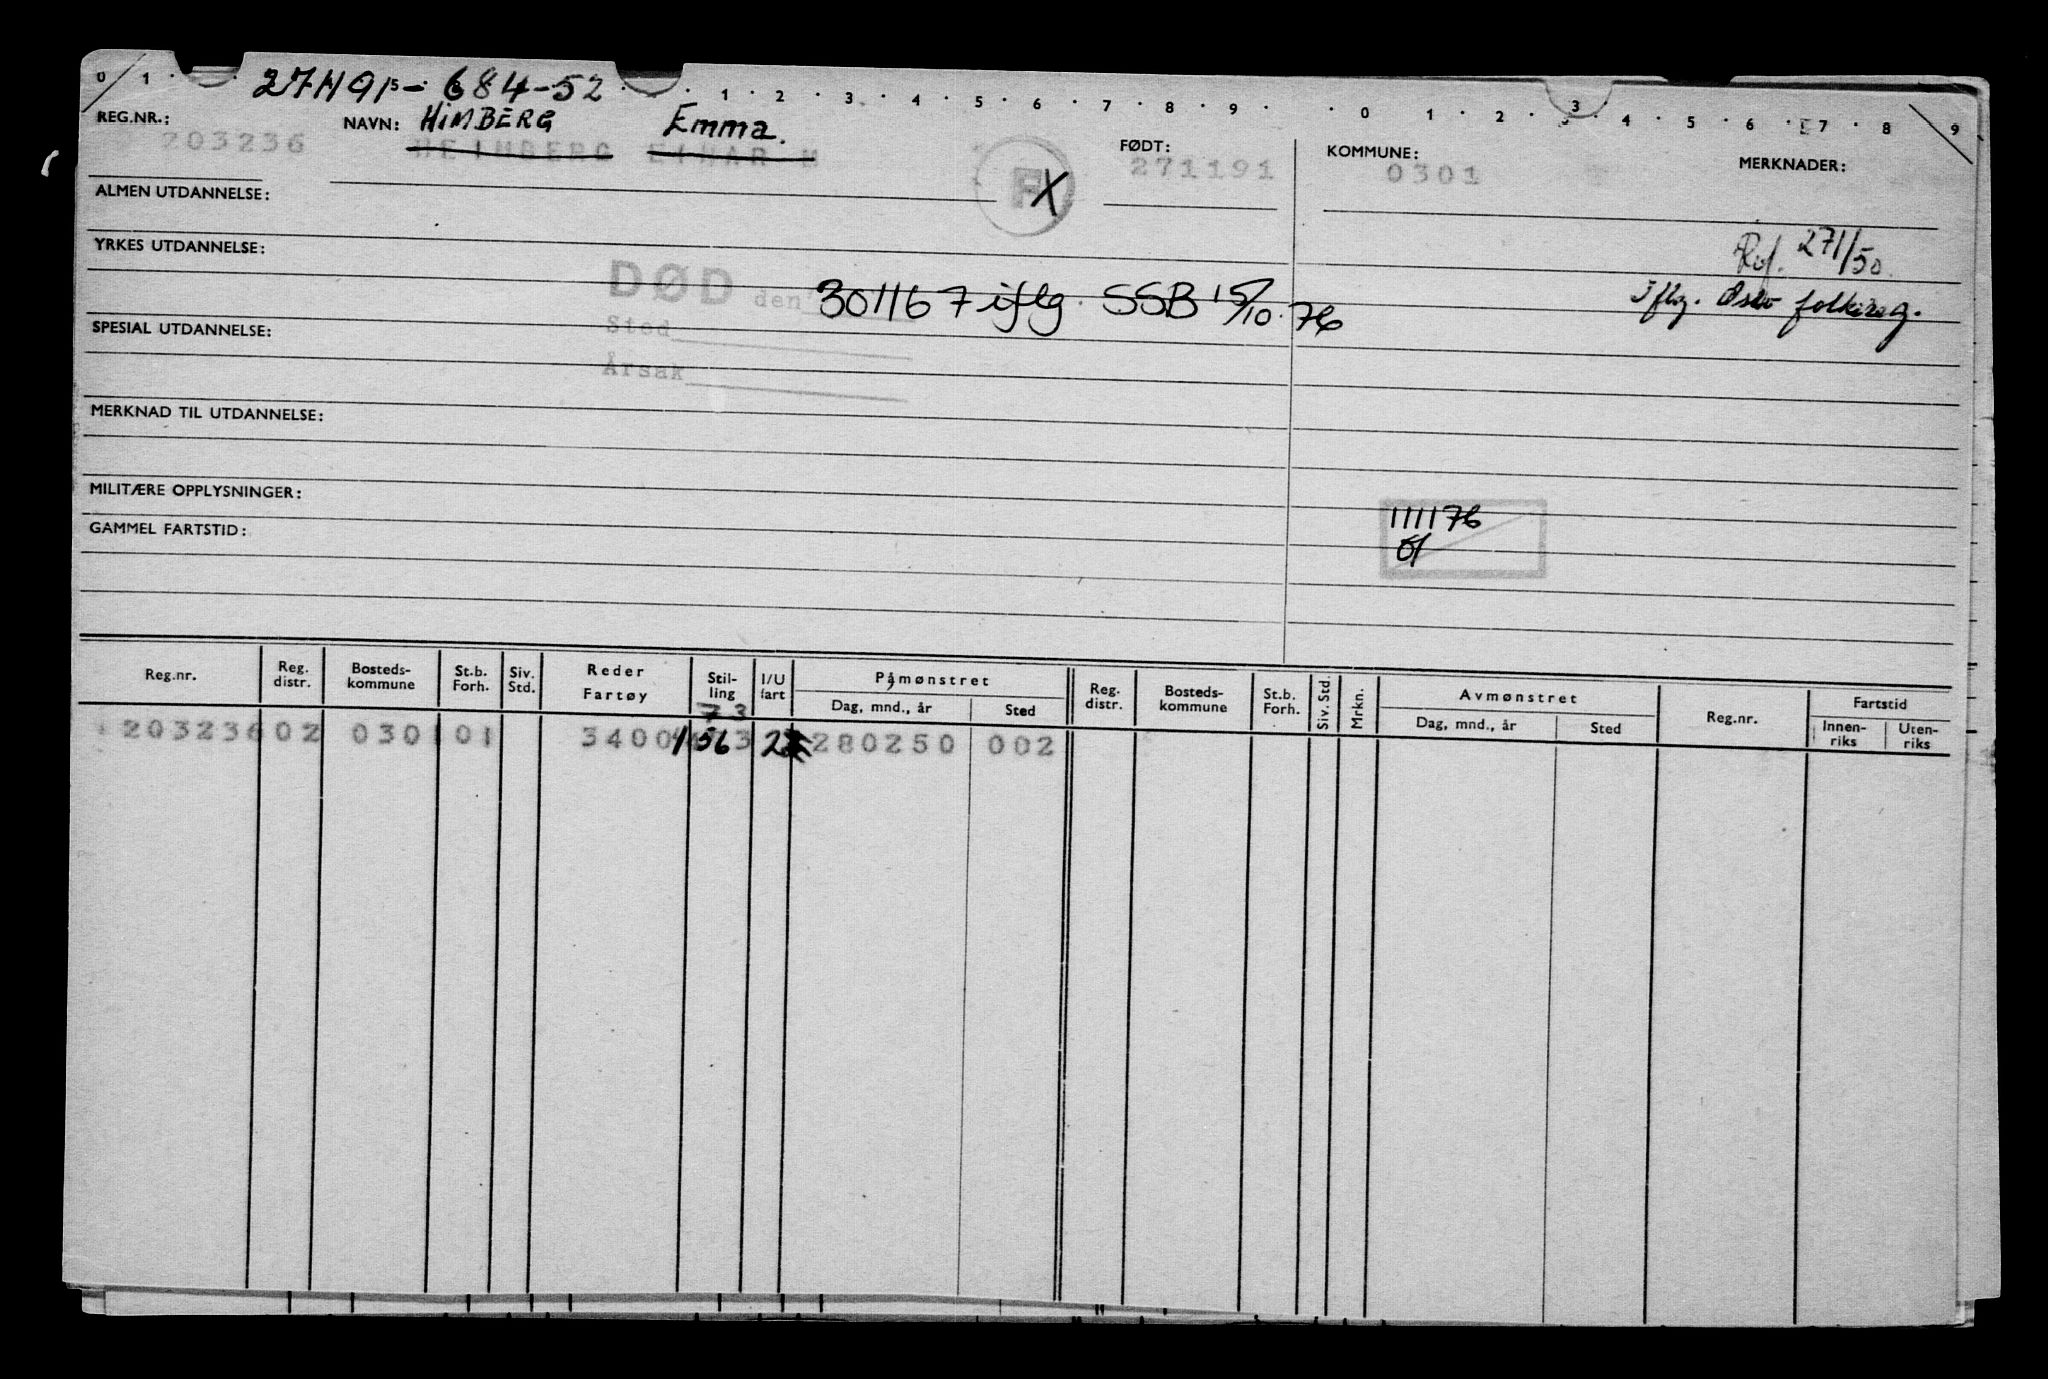 0 1 1 2 3 4 5 6 7 8 9 0 1 2 3 4 5 6 7 8 9
REG.NR.: 203236
NAVN: HIMBERG Emma.
HEIMBERG EINAR M
FØDT: 271191
KOMMUNE: 0301
MERKNADER:
ALMEN UTDANNELSE:
YRKES UTDANNELSE:
271/50
DØD den 301167 iflg. SSB 15/10.76
Iflg. Oslo folkereg.
Sted
SPESIAL UTDANNELSE:
Årsak
MERKNAD TIL UTDANNELSE:
MILITÆRE OPPLYSNINGER:
111176
GAMMEL FARTSTID:
Reg.nr. Reg. distr. Bosteds-kommune St.b. Forh. Siv. Std. Reder Fartøy Stil-ling I/U fart Påmønstret Dag, mnd., år Sted Reg. distr. Bosteds-kommune St.b. Forh. Siv. Std. Mrkn. Avmønstret Dag, mnd., år Sted Reg.nr. Fartstid Innen-riks Uten-riks
73
203236 02 0301 01 3400 156 2 280250 002